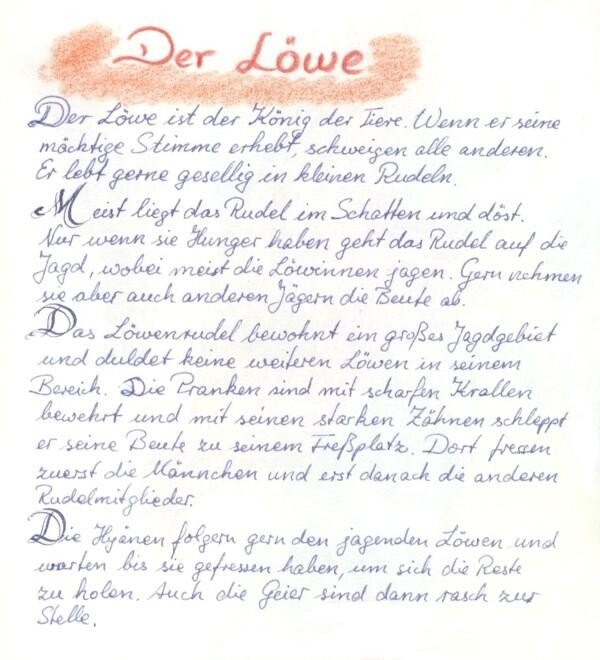 Der Löwe
Der Löwe ist der König der Tiere. Wenn er seine
mächtige Stimme erhebt, schweigen alle anderen.
Er lebt gerne gesellig in kleinen Rudeln.
Meist liegt das Rudel im Schatten und döst.
Nur wenn sie Hunger haben geht das Rudel auf die
Jagd, wobei meist die Löwinnen jagen. Gern nehmen
sie aber auch anderen Jägern die Beute ab.
Das Löwenrudel bewohnt ein großes Jagdgebiet
und duldet keine weiteren Löwen in seinem
Bereich. Die Pranken sind mit scharfen Krallen
bewehrt und mit seinen starken Zähnen schleppt
er seine Beute zu seinem Freßplatz. Dort fressen
zuerst die Männchen und erst danach die anderen
Rudelmitglieder.
Die Hyänen folgern gern den jagenden Löwen und
warten bis sie gefressen haben, um sich die Reste
zu holen. Auch die Geier sind dann rasch zur
Stelle.